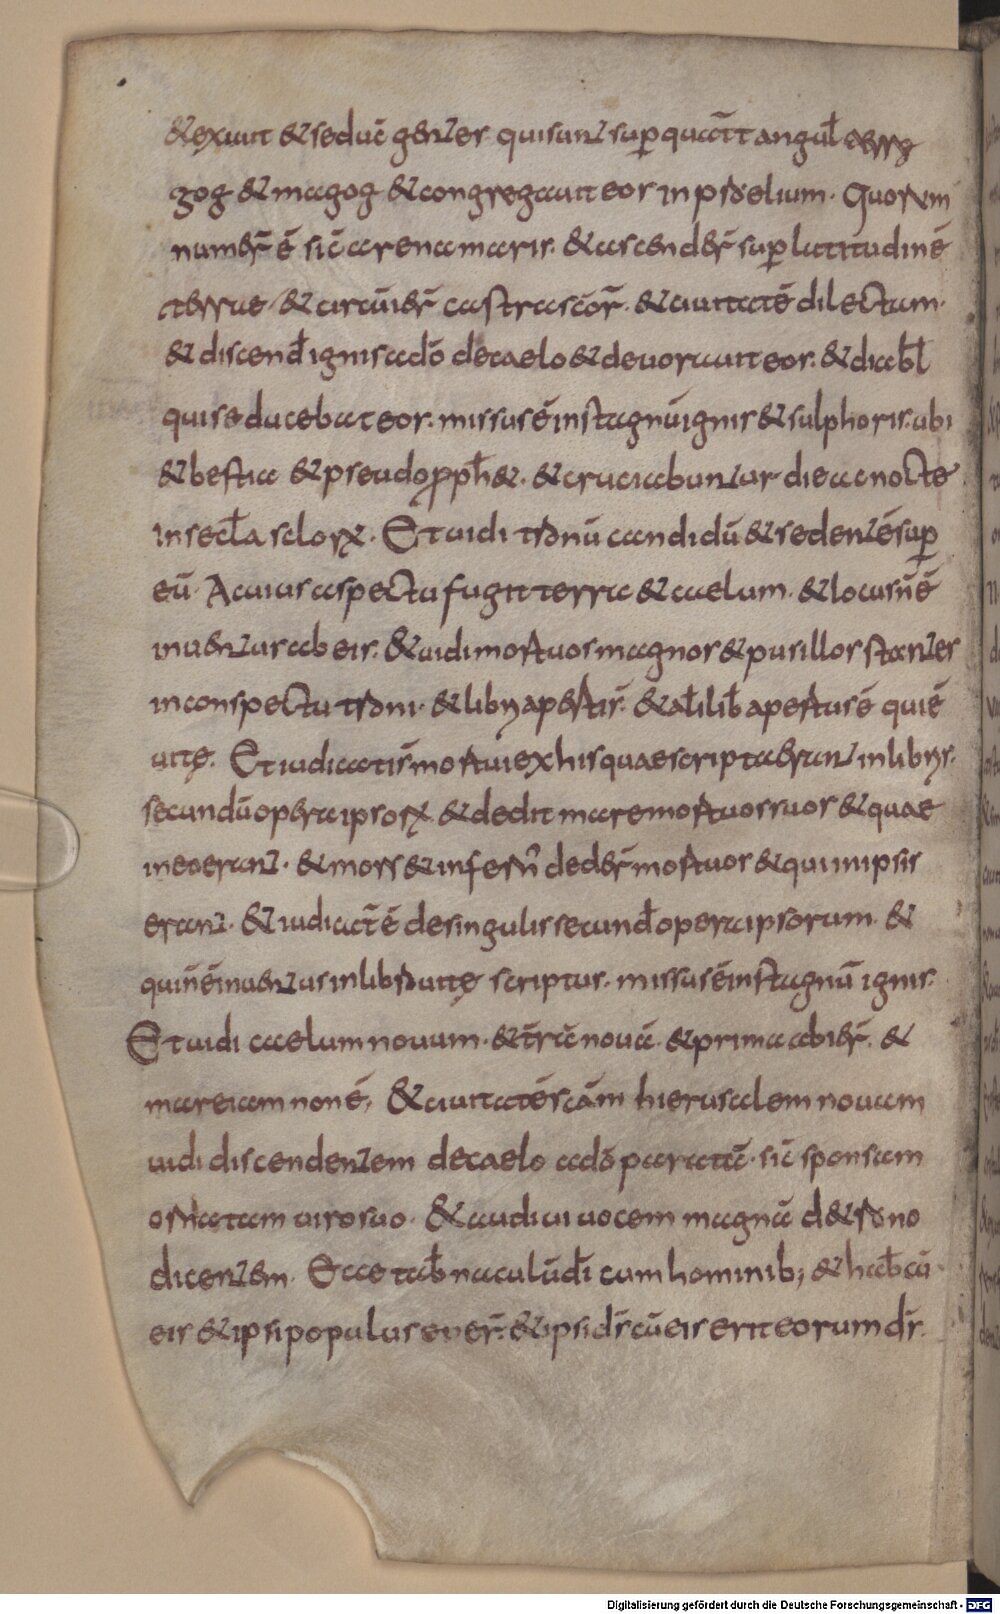 &exiuit &seduc̄ gentes quisunt sup̱ quat̄t angul̄ terrę
gog &magog &congregauit eos in proelium. Quorum
numer̄ ē sic̄ arena maris. &ascender̄ sup̱ latitudinē
terrae &circuier̄ castra sc̄or̄. &ciuitatē dilectam.
&discend̄ ignis ado̅ decaelo &deuorauit eos. &diabl̄
quiseducebat eos. missus ē in stagnū ignis &sulphoris. ubi
&bestia &pseudopp̄h&. &cruciabuntur die ac nocte
in secl̄a scloꝝ. Et uidi tronū candidū &sedentē sup̱
eū. A cuius aspectu fugit terra &caelum. &locus n̄ ē
inuentus ab eis. &uidi mortuos magnos &pusillos stantes
in conspectu troni. &libri aperti s̄. &al̄i lib̄ apertus ē qui ē
uitę. Et iudicati s̄ mortui ex his quae scripta erant in libris.
secundū opera ipsoꝝ &dedit mare mortuos suos &quae
in eo erant. &mors &infern̄ deder̄ mortuos &qui in ipsis
erant. &iudicat̄ ē desingulis secund̄ opera ipsorum. &
qui n̄ ē inuentus in libro uitę scriptus. missus ē in stagnū ignis.
Et uidi caelum nouum. &t̄rā nouā. &prima abier̄. &
mare iam non ē. &ciuitatē sc̄ām hierusalem nouam
uidi discendentem decaelo ado̅ paratā. sic̄ sponsam
ornatam uiro suo. &audiui uocem magnā de trono
dicentem. Ecce tab̄naculū d̄i cum hominib; &hab̄ cū
eis &ipsi populus eius er̄. &ipse d̄s cū eis erit eorum d̄s.
Digitalisierung gefördert durch die Deutsche Forschungsgemeinschaft - DFG